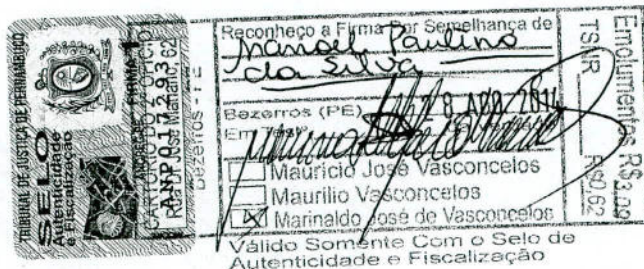 TRIBUNAL DE JUSTIÇA DE PERNAMBUCO
SELO
Autenticidade
e Fiscalização
FIRMA 1
ANP017293
CARTÓRIO DO 2º OFÍCIO
Rua Dr José Mariano, 62
Bezerros - PE
Reconheço a Firma Por Semelhança de
Manoel Paulino
da Silva
Bezerros (PE) 28 AGO 2014
Em Testº
Mauricio José Vasconcelos
Maurilio Vasconcelos
Marinaldo José de Vasconcelos
Válido Somente Com o Selo de
Autenticidade e Fiscalização
Emolumentos R$3,09
TSNR R$0,62